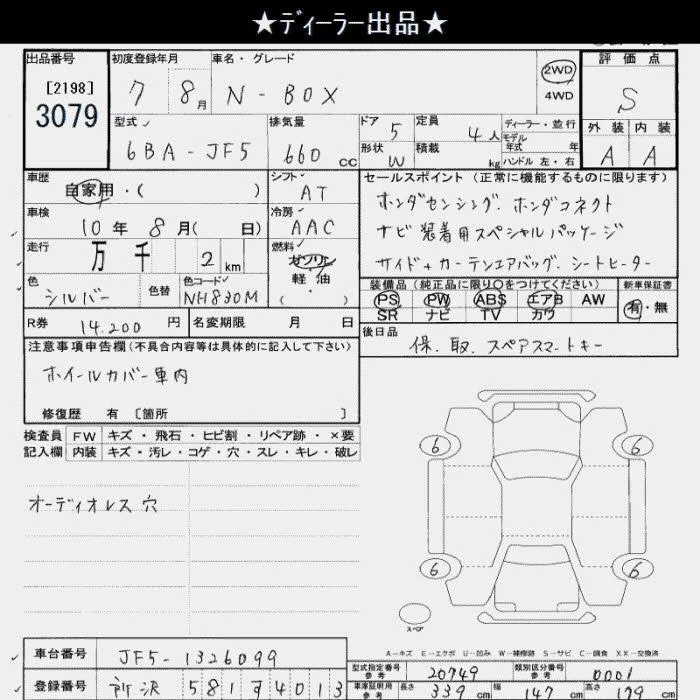 ★ディーラー出品★
出品番号 初度登録年月 車名・グレード 評価点
[2198] 7 8月 N-BOX 2WD S
3079 4WD
型式 排気量 ドア 5 定員 4人 ディーラー・並行 外装 内装
モデル
6BA-JF5 660cc 形状 W 積載 kg 年式 年 A A
ハンドル 左・右
車歴 シフト セールスポイント (正常に機能するものに限ります)
自家用・( ) AT ホンダセンシング. ホンダコネクト
車検 冷房
10年 8月( 日) AAC ナビ装着用スペシャルパッケージ
走行 燃料
万 千 2km ガソリン サイド+カーテンエアバッグ. シートヒーター
軽・油
色 色替 色コード ( ) 装備品 (純正品に限り○をつけてください) 新車保証書
シルバー NH830M PS PW ABS エアB AW 有・無
SR ナビ TV カワ
R券 14.200円 名変期限 月 日 後日品
注意事項申告欄(不具合内容等は具体的に記入して下さい) 保. 取. スペアスマートキー
ホイールカバー車内
修復歴 有 〔箇所 〕
検査員 FW キズ・飛石・ヒビ割・リペア跡・×要
記入欄 内装 キズ・汚レ・コゲ・穴・スレ・キレ・破レ
6 6
オーディオレス穴
6 6
スペア
A-キズ E-エクボ U-凹み W-補修跡 S-サビ C-腐食 XX-交換済
車台番号 JF5-1326099 型式指定番号 参考 20749 類別区分番号 参考 0001
登録番号 所沢 581 す 4013 車庫証明用 参考 長さ 339cm 幅 147cm 高さ 179cm